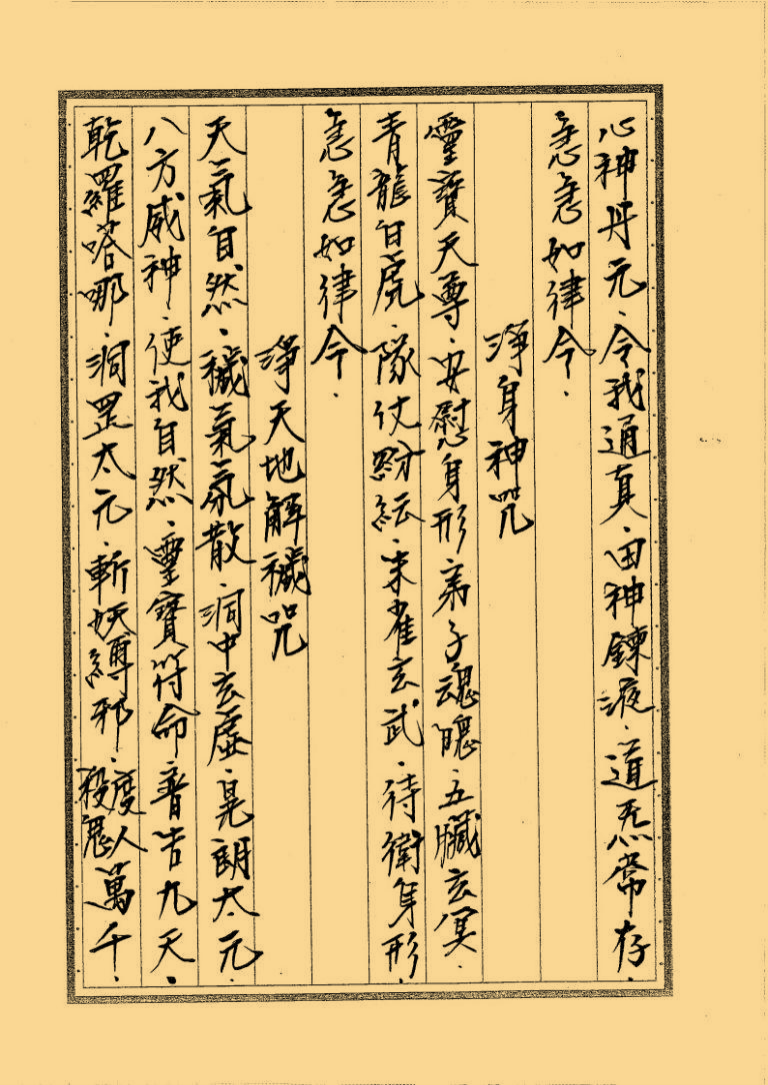 心神丹元·令我通真·田神鍊液·道炁常存·
急急如律令·
淨身神咒
靈寶天尊·安慰身形·弟子魂魄·五臟玄冥·
青龍白虎·隊仗紛紜·朱雀玄武·待衛身形·
急急如律令·
淨天地解穢咒
天氣自然·穢氣氛散·洞中玄虛·晃朗太元·
八方威神·使我自然·靈寶符命普告九天·
乾羅嗒哪·洞罡太元·斬妖縛邪·度人殺鬼萬千·